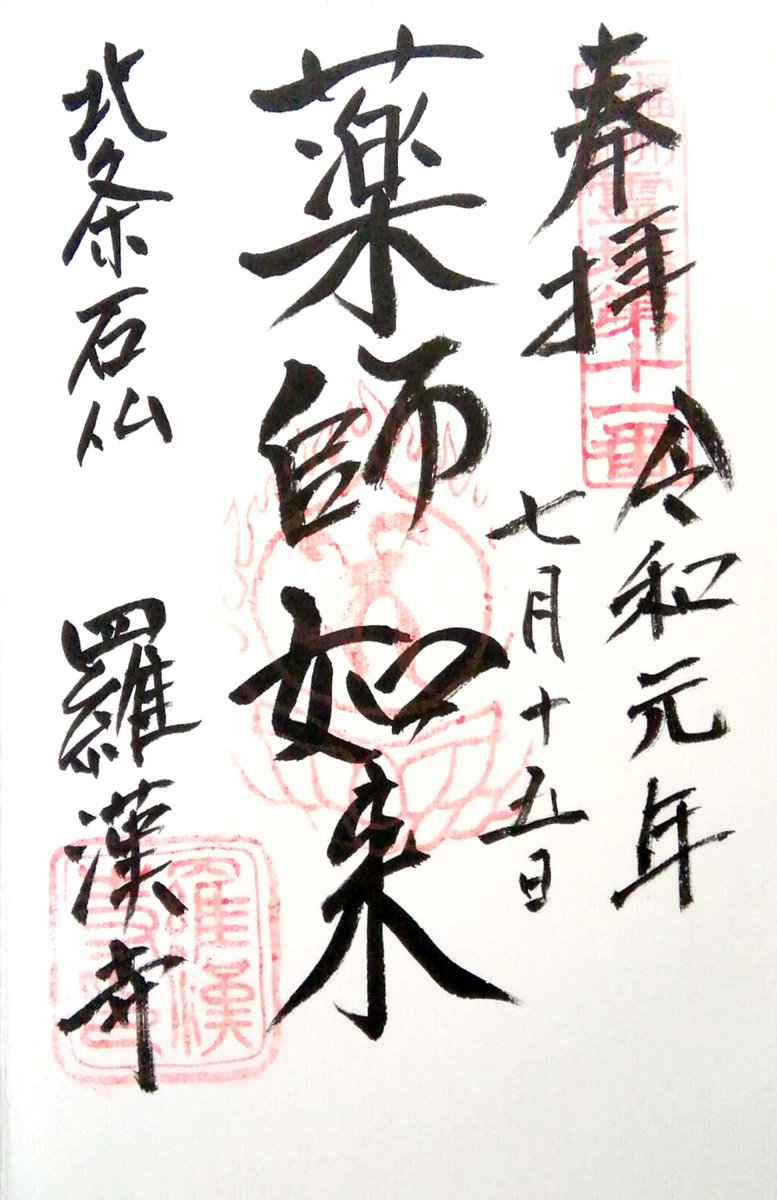 奉拝
播州靈場第十一番
令和元年
七月十五日
薬師如来
北条石仏
羅漢寺
羅漢